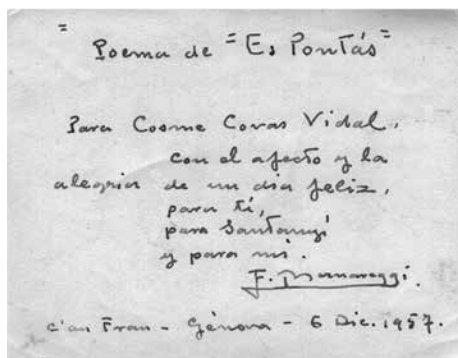 = Poema de "Es Pontás"
Para Cosme Covas Vidal,
con el afecto y la
alegria de un dia feliz,
para ti,
para Santanyí
y para mi.
F. Bernareggi.
C'an Fran - Génova - 6 Dic. 1957.